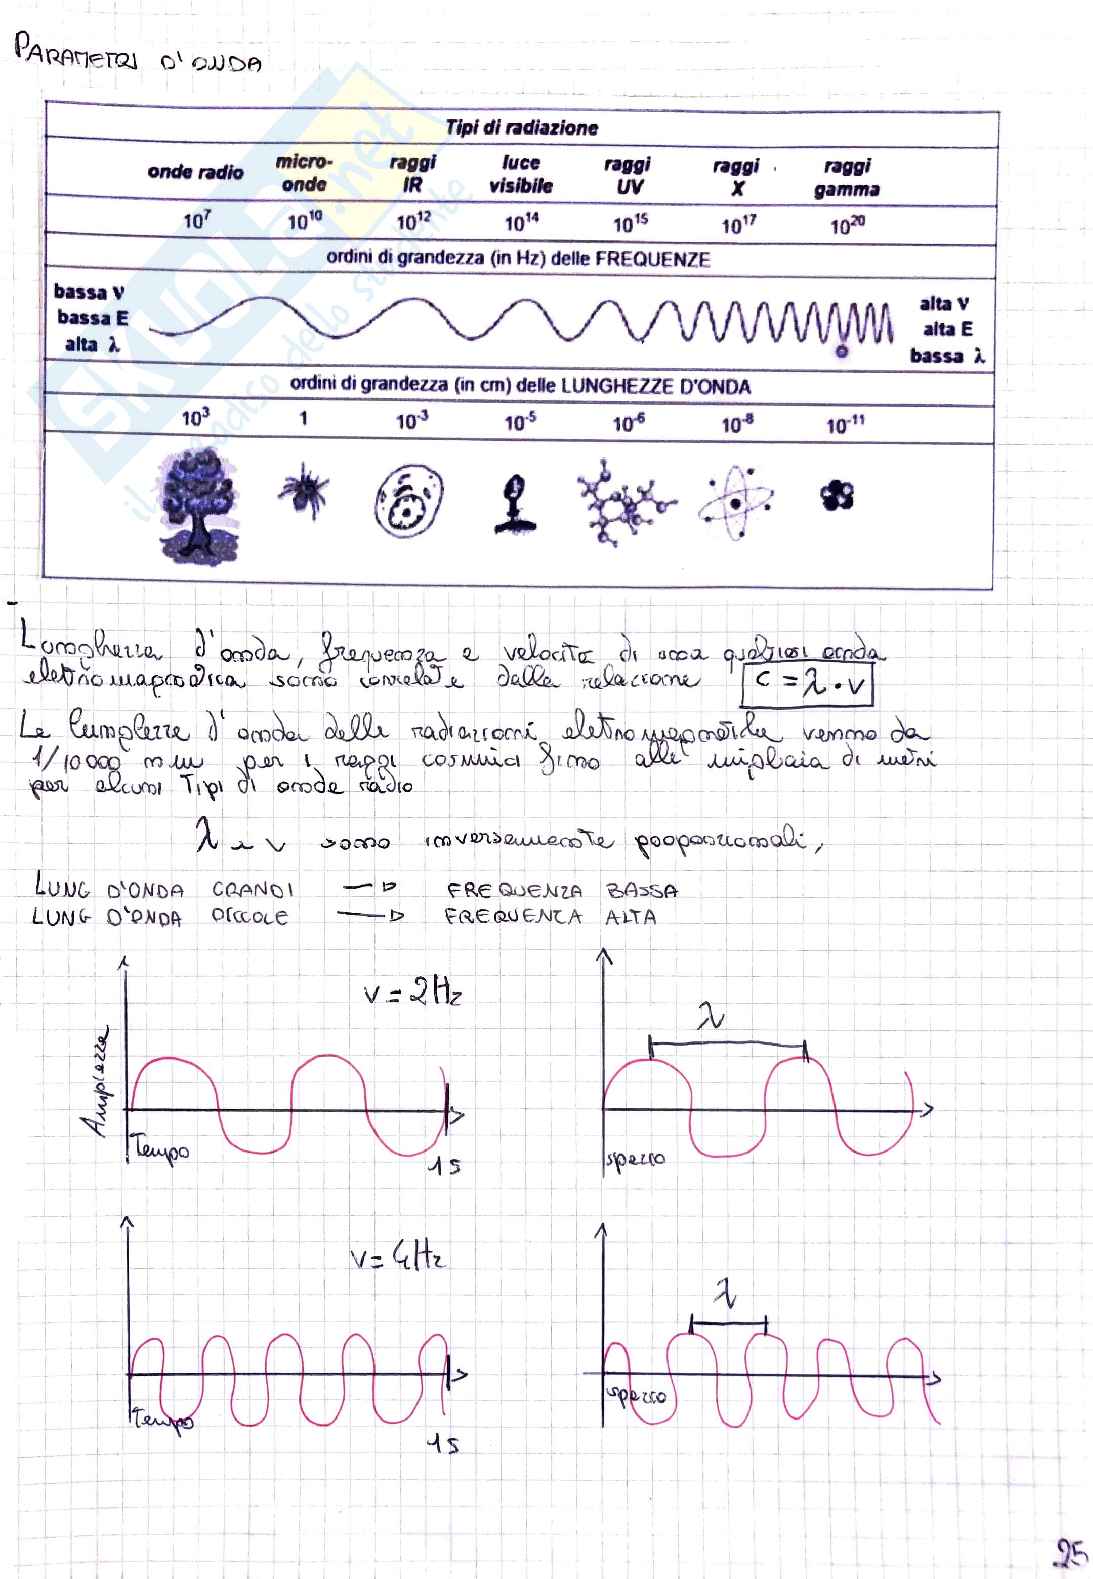 PARAMETRI D'ONDA
Tipi di radiazione
onde radio micro-onde raggi IR luce visibile raggi UV raggi X raggi gamma
10⁷ 10¹⁰ 10¹² 10¹⁴ 10¹⁵ 10¹⁷ 10²⁰
ordini di grandezza (in Hz) delle FREQUENZE
bassa ν alta ν
bassa E alta E
alta λ bassa λ
ordini di grandezza (in cm) delle LUNGHEZZE D'ONDA
10³ 1 10⁻³ 10⁻⁵ 10⁻⁶ 10⁻⁸ 10⁻¹¹
Lunghezza d'onda, frequenza e velocità di una qualsiasi onda
elettromagnetica sono correlate dalla relazione c = λ · ν
Le lunghezze d'onda delle radiazioni elettromagnetiche vanno da
1/10000 nm per i raggi cosmici fino alle migliaia di metri
per alcuni Tipi di onde radio
λ e ν sono inversamente proporzionali,
LUNG D'ONDA GRANDI → FREQUENZA BASSA
LUNG D'ONDA PICCOLE → FREQUENZA ALTA
ν = 2Hz λ
Ampiezza
Tempo 1s spazio
ν = 4Hz λ
Tempo 1s spazio
25
skuola.net
il paradiso dello studente